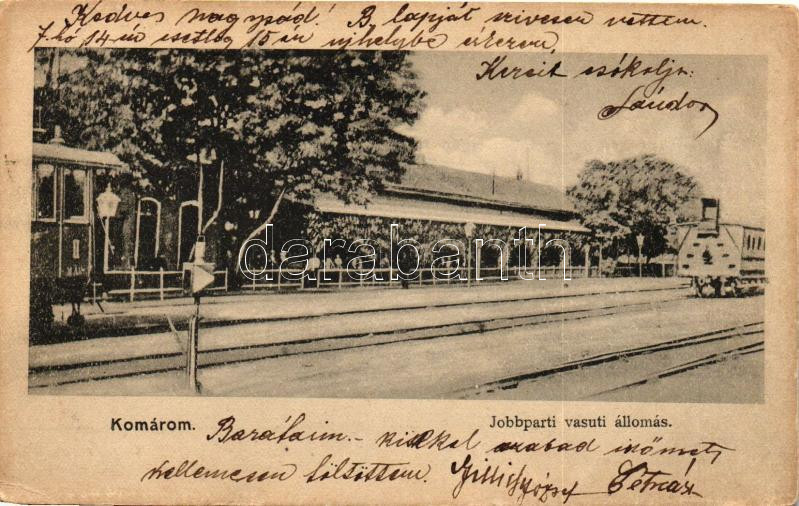 Kedves nagysád! B. lapját szivesen vettem.
7. hó 14-én esetleg 15-én ujhelybe érkezem.
Kezeit csókolja
Sándor
1
darabanth
Komárom. Jobbparti vasuti állomás.
Barátaim - szabad időmet
kellemesen töltöttem. József